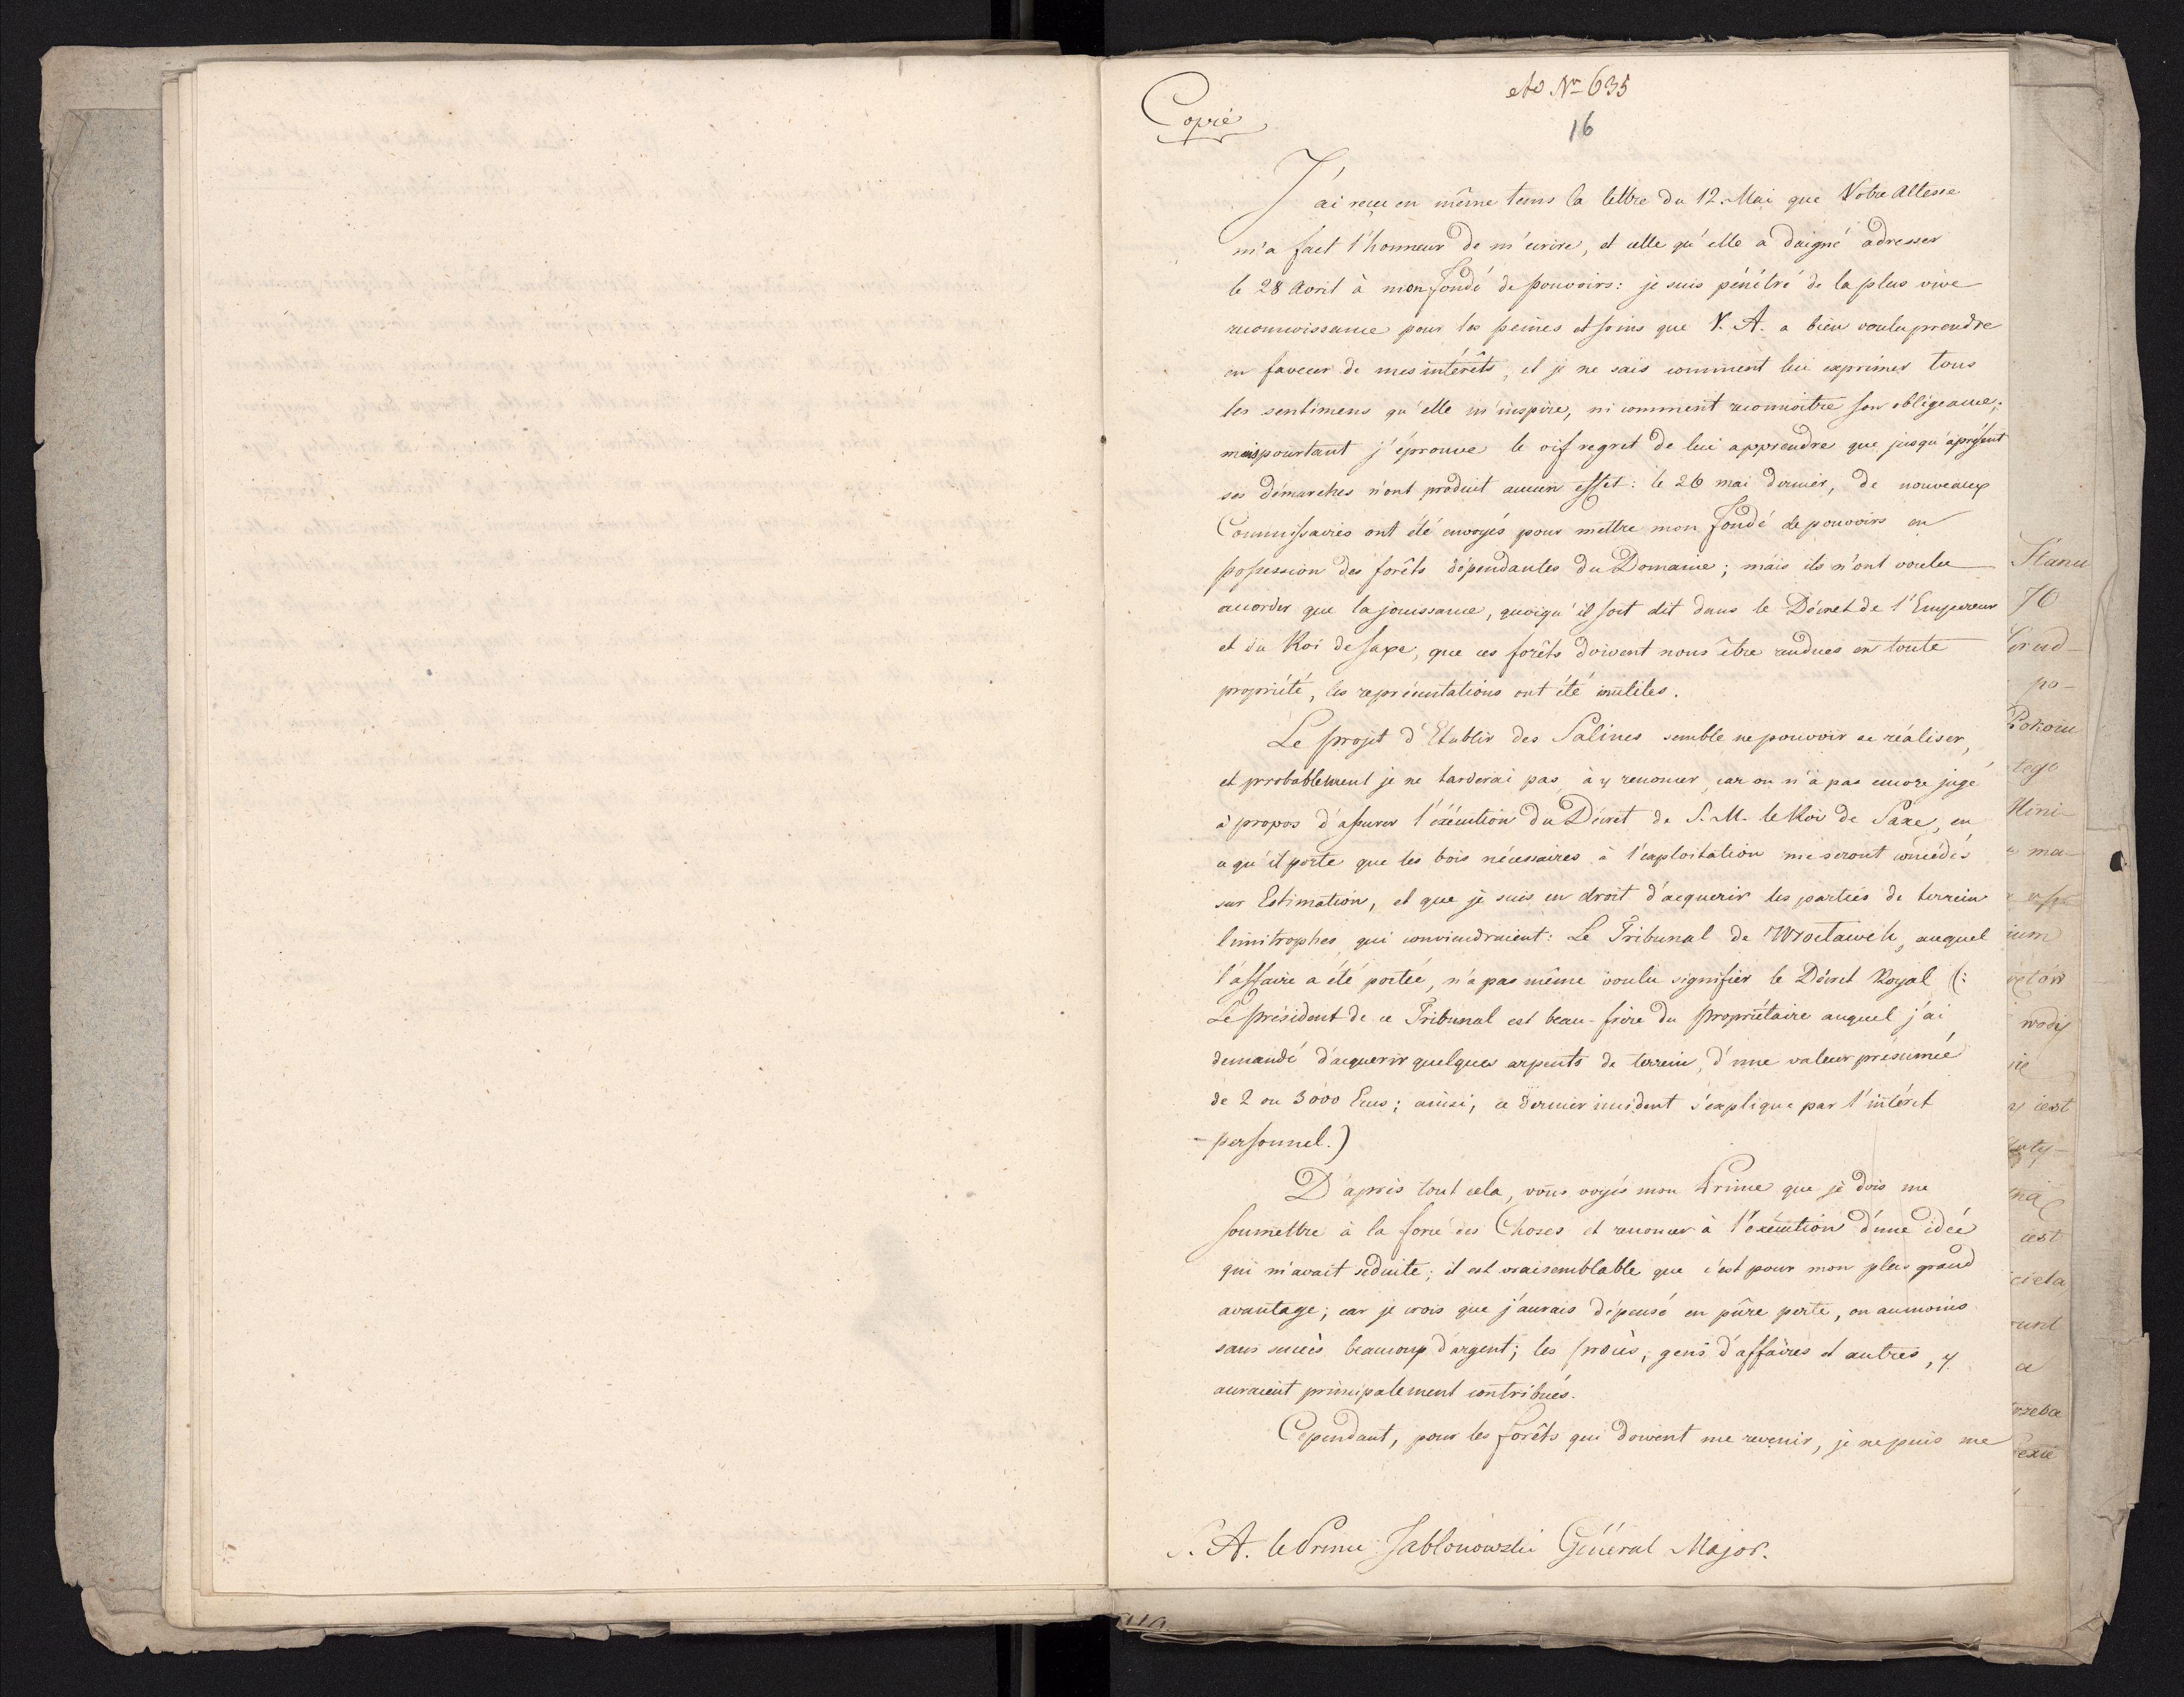 Copie
ad Nr 635
16
J'ai reçue en même tems la lettre du 12. Mai que Votre Altesse
m'a fait l'honneur de m'ecrire, et celle qu'elle a daigné adresser
le 28 Avril à mon fondé de pouvoirs: je suis pénétré de la plus vive
reconnoissance pour les peines et soins que V. A. a bien voulu prendre
en faveur de mes intérêts, et je ne sais comment lui exprimer tous
les sentimens qu'elle m'inspire, ni comment reconnoitre son obligeance;
mais pourtant j'éprouve le vif regret de lui apprendre que jusqu'àprésent
ses démarches n'ont produit aucun effet: le 26 mai dernier, de nouveaux
Commissaires ont été envoyés pour mettre mon fondé de pouvoirs en
possession des forêts dépendantes du Domaine; mais ils n'ont voulu
accorder que la jouissance, quoiqu'il soit dit dans le Décret de l'Empereur
et du Roi de Saxe, que ces forêts doivent nous être rendues en toute
propriété, les représentations ont été inutiles.
Le projet d'Etablir des Salines semble ne pouvoir se réaliser,
et probablement je ne tarderai pas à y renoncer, car on n'à pas encore jugé
à propos d'assurer l'éxécution du Décret de S. M. le Roi de Saxe, en
ce qu'il porte que les bois nécessaires à l'exploitation me seront concédés
sur Estimation, et que je suis en droit d'acquerir les parties de terrein
limitrophes qui conviendraient: Le Tribunal de Wroctawek, auquel
l'affaire a été portée, n'a pas même voulu signifier le Décret Royal (:
Le président de ce Tribunal est beau-frère du propriétaire auquel j'ai
demandé d'acquerir quelques arpents de terrein, d'une valeur présumée
de 2 ou 3000 Ecus; ainsi, ce dernier incident s'explique par l'intéret
personnel.)
D'après tout cela, vous voyés mon Prince que je dois me
soumettre à la force des Choses et renoncer à l'exécution d'une idée
qui m'avait séduite; il est vraisemblable que c'est pour mon plus grand
avantage; car je crois que j'aurais dépensé en pûre perte, ou aumoins
sans succès beaucoup d'argent; les procès, gens d'affaires et autres, y
auraient principalement contribués.
Cependant, pour les forêts qui doivent me revenir, je ne puis me
S. A. le Prince Jablonowski Général Major.